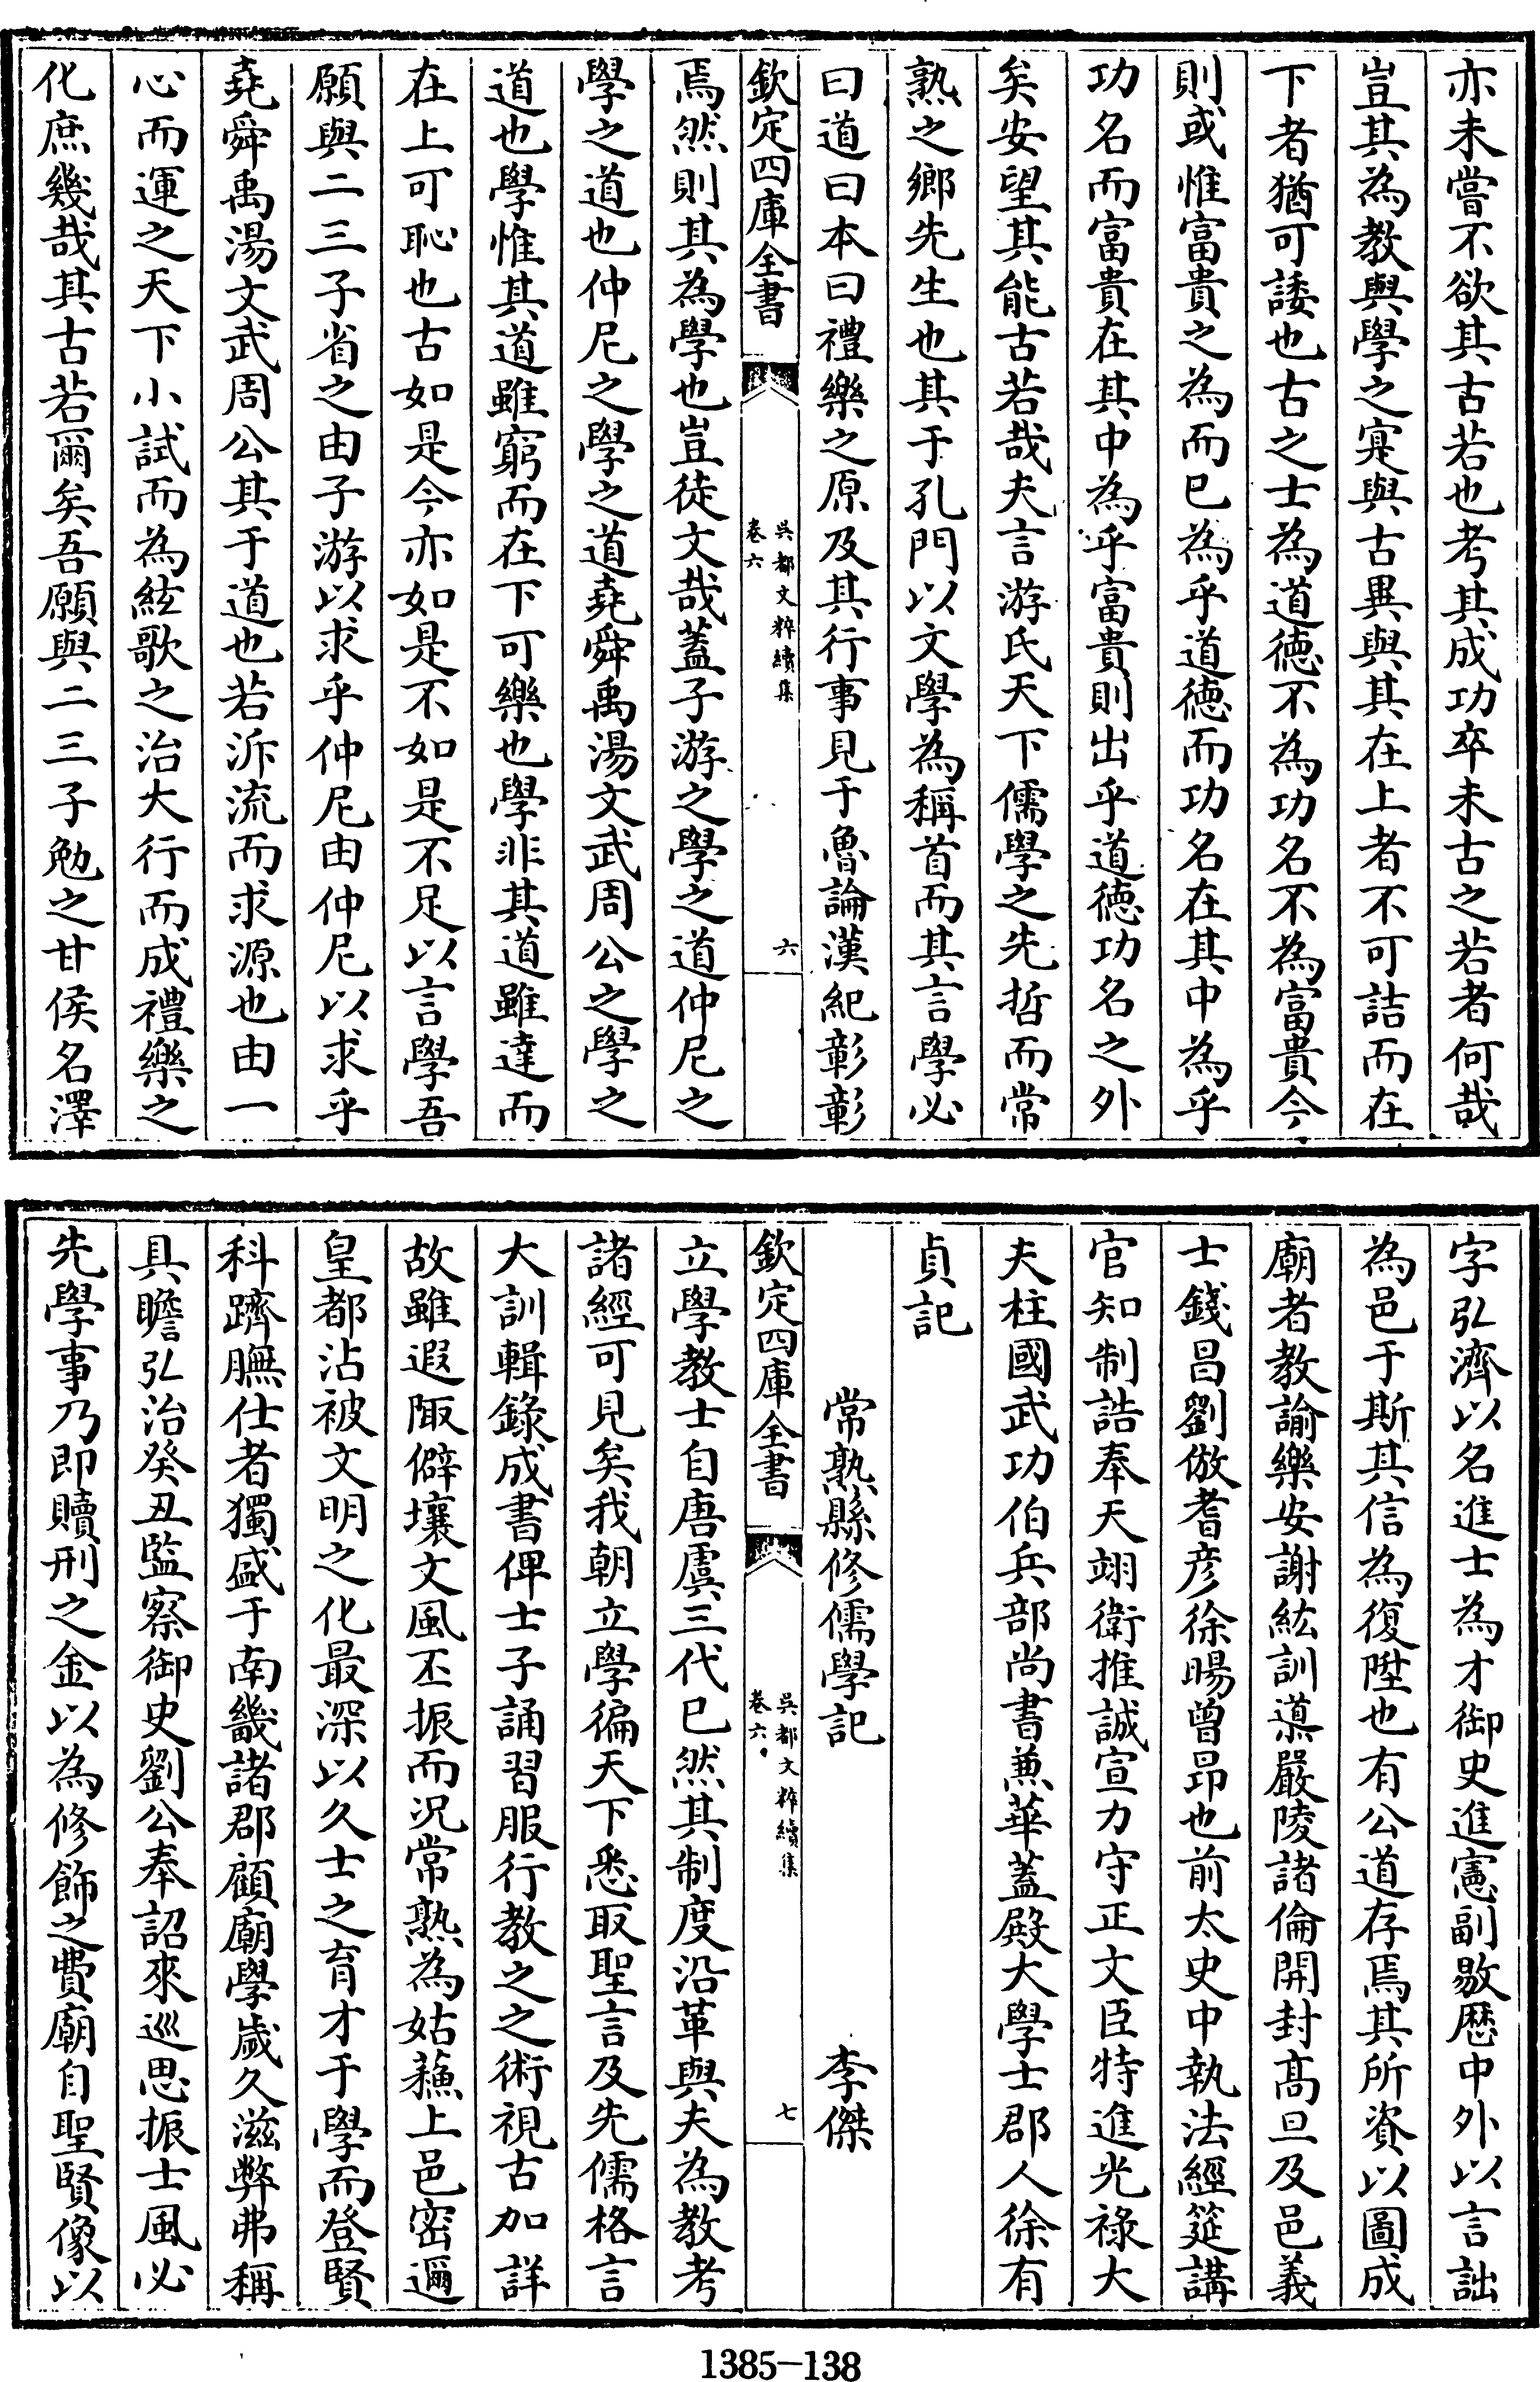 亦未嘗不欲其古若也考其成功卒未古之若者何哉
豈其為教與學之寔與古異與其在上者不可詰而在
下者猶可諉也古之士為道徳不為功名不為富貴今
則或惟富貴之為而已為乎道徳而功名在其中為乎
功名而富貴在其中為乎富貴則出乎道徳功名之外
矣安望其能古若哉夫言游氏天下儒學之先哲而常
熟之鄉先生也其于孔門以文學為稱首而其言學必
曰道曰本曰禮樂之原及其行事見于魯論漢紀彰彰
欽定四庫全書
吳都文粹續集
卷六
六
焉然則其為學也豈徒文哉蓋子游之學之道仲尼之
學之道也仲尼之學之道堯舜禹湯文武周公之學之
道也學惟其道雖窮而在下可樂也學非其道雖達而
在上可恥也古如是今亦如是不如是不足以言學吾
願與二三子省之由子游以求乎仲尼由仲尼以求乎
堯舜禹湯文武周公其于道也若泝流而求源也由一
心而運之天下小試而為絃歌之治大行而成禮樂之
化庶幾哉其古若爾矣吾願與二三子勉之甘侯名澤
字弘濟以名進士為才御史進憲副敭歴中外以言詘
為邑于斯其信為復陞也有公道存焉其所資以圖成
廟者教諭樂安謝紘訓導嚴陵諸倫開封髙旦及邑義
士錢昌劉倣耆彦徐暘曾昂也前太史中執法經筵講
官知制誥奉天翊衛推誠宣力守正文臣特進光祿大
夫柱國武功伯兵部尚書兼華蓋殿大學士郡人徐有
貞記
常熟縣修儒學記　李傑
欽定四庫全書
吳都文粹續集
卷六
七
立學教士自唐虞三代已然其制度沿革與夫為教考
諸經可見矣我朝立學徧天下悉取聖言及先儒格言
大訓輯錄成書俾士子誦習服行教之之術視古加詳
故雖遐陬僻壤文風丕振而況常熟為姑蘓上邑密邇
皇都沾被文明之化最深以久士之育才于學而登賢
科躋膴仕者獨盛于南畿諸郡顧廟學歲久滋弊弗稱
具瞻弘治癸丑監察御史劉公奉詔來巡思振士風必
先學事乃即贖刑之金以為修飾之費廟自聖賢像以
1385-138